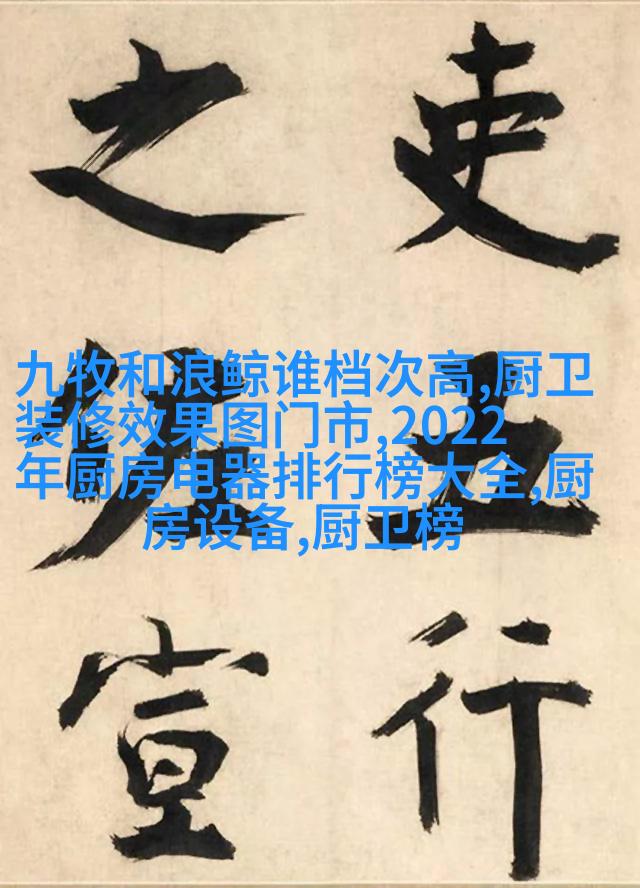 吏五行
之佐宣
九牧和浪鲸谁档次高,厨卫
装修效果图门市,2022
年厨房电器排行榜大全,厨
房设备,厨卫榜